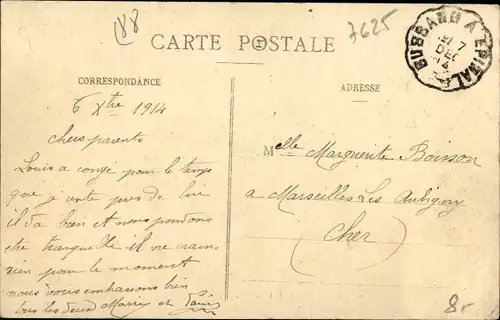 (88
7625
CARTE POSTALE
BUSSANG A ÉPINAL
7
DEC
14
CORRESPONDANCE
ADRESSE
6 Xbre 1914
chers parents
Louis a conge pour le temps
que je reste près de lui
il va bien et nous pondons
etre tranquille il ne crains
rien pour le moment
nous vous embrassons bien
tous les deux Marie et Louis
Melle Marguerite Boisson
a Marseilles Les Aubigny
(Cher)
8-